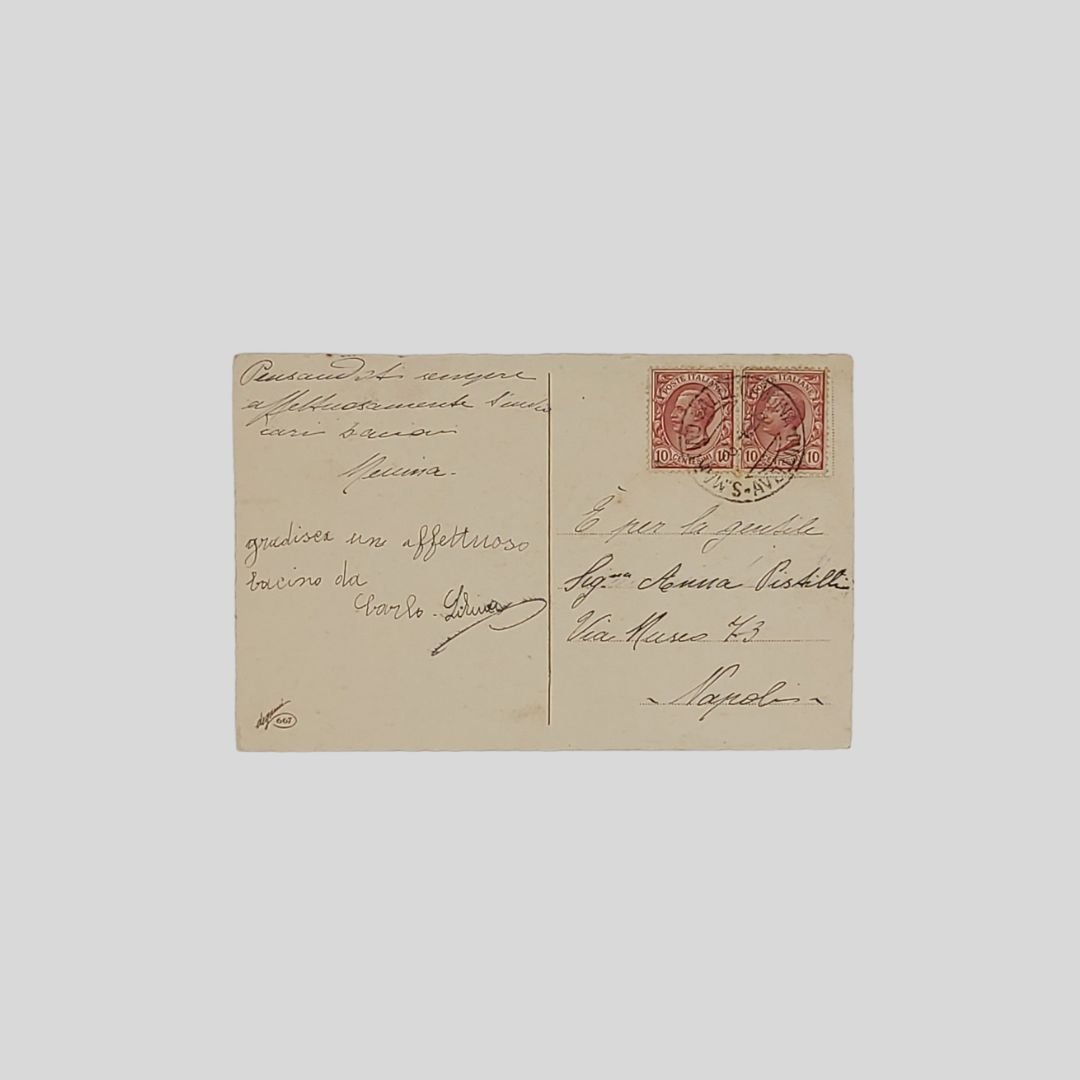 Pensandoti sempre
affettuosamente t'invio
cari bacioni
Menina.
gradisca un affettuoso
bacino da
Carlo - Liliana
667
POSTE ITALIANE
10 CENTESIMI 10
POSTE ITALIANE
10 CENTESIMI 10
È per la gentile
Sig.na Anna Pistilli
Via Museo 73
Napoli